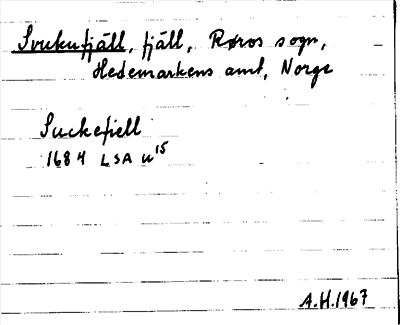 Svukufjäll, fjäll, Røros sogn,
Hedemarkens amt, Norge
Suckefiell
1684 LSA u15
A.H.1967